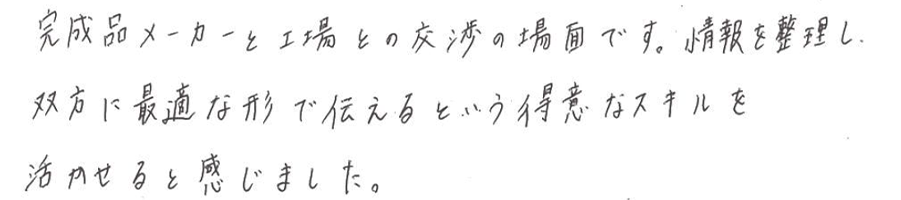 完成品メーカーと工場との交渉の場面です。情報を整理し、
双方に最適な形で伝えるという得意なスキルを
活かせると感じました。